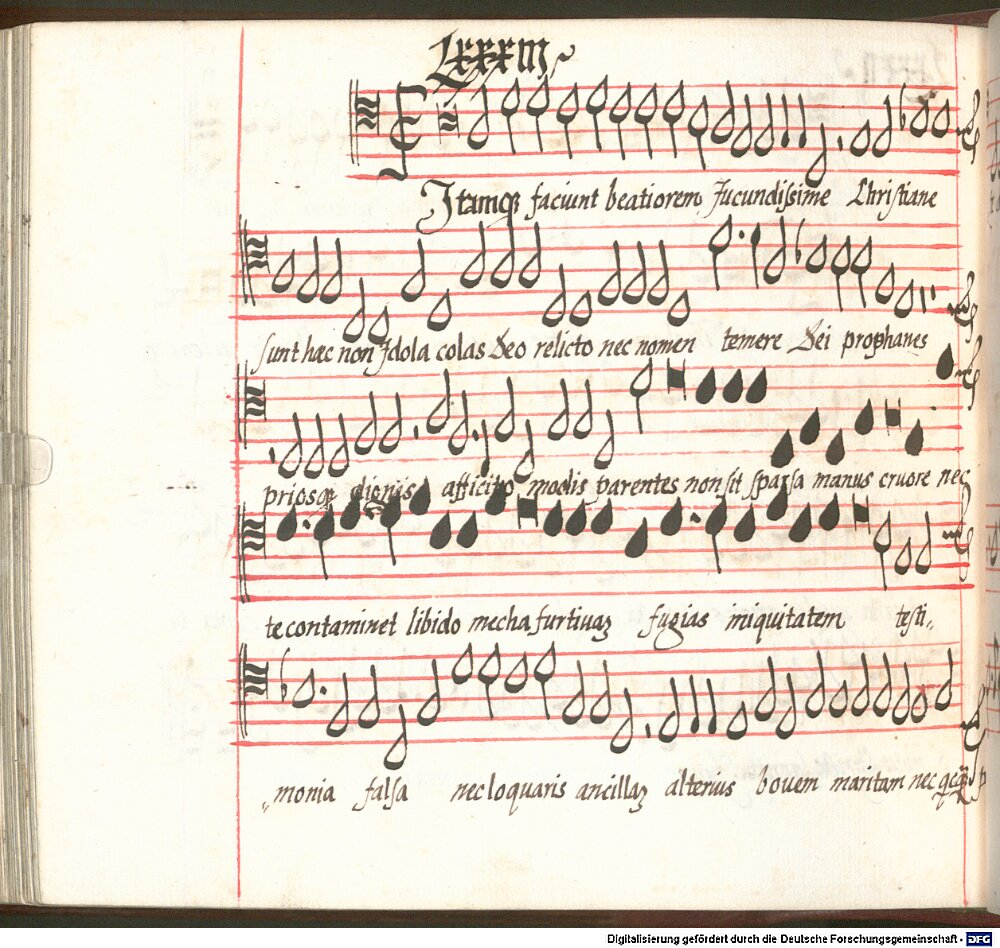 Lxxxiij
Itamqȝ faciunt beatiorem Jucundiſsime Chriſtiane
ſunt hæc non Idola colas Deo relicto nec nomen temere Dei prophanes
priosqȝ dignis afficito modis parentes non ſit ſparſa manus cruore nec
te contaminet libido mecha furtiuaȝ fugias iniquitatem teſti„
„monia falſa nec loquaris ancillaȝ alterius bouem maritam nec
Digitalisierung gefördert durch die Deutsche Forschungsgemeinschaft - DFG